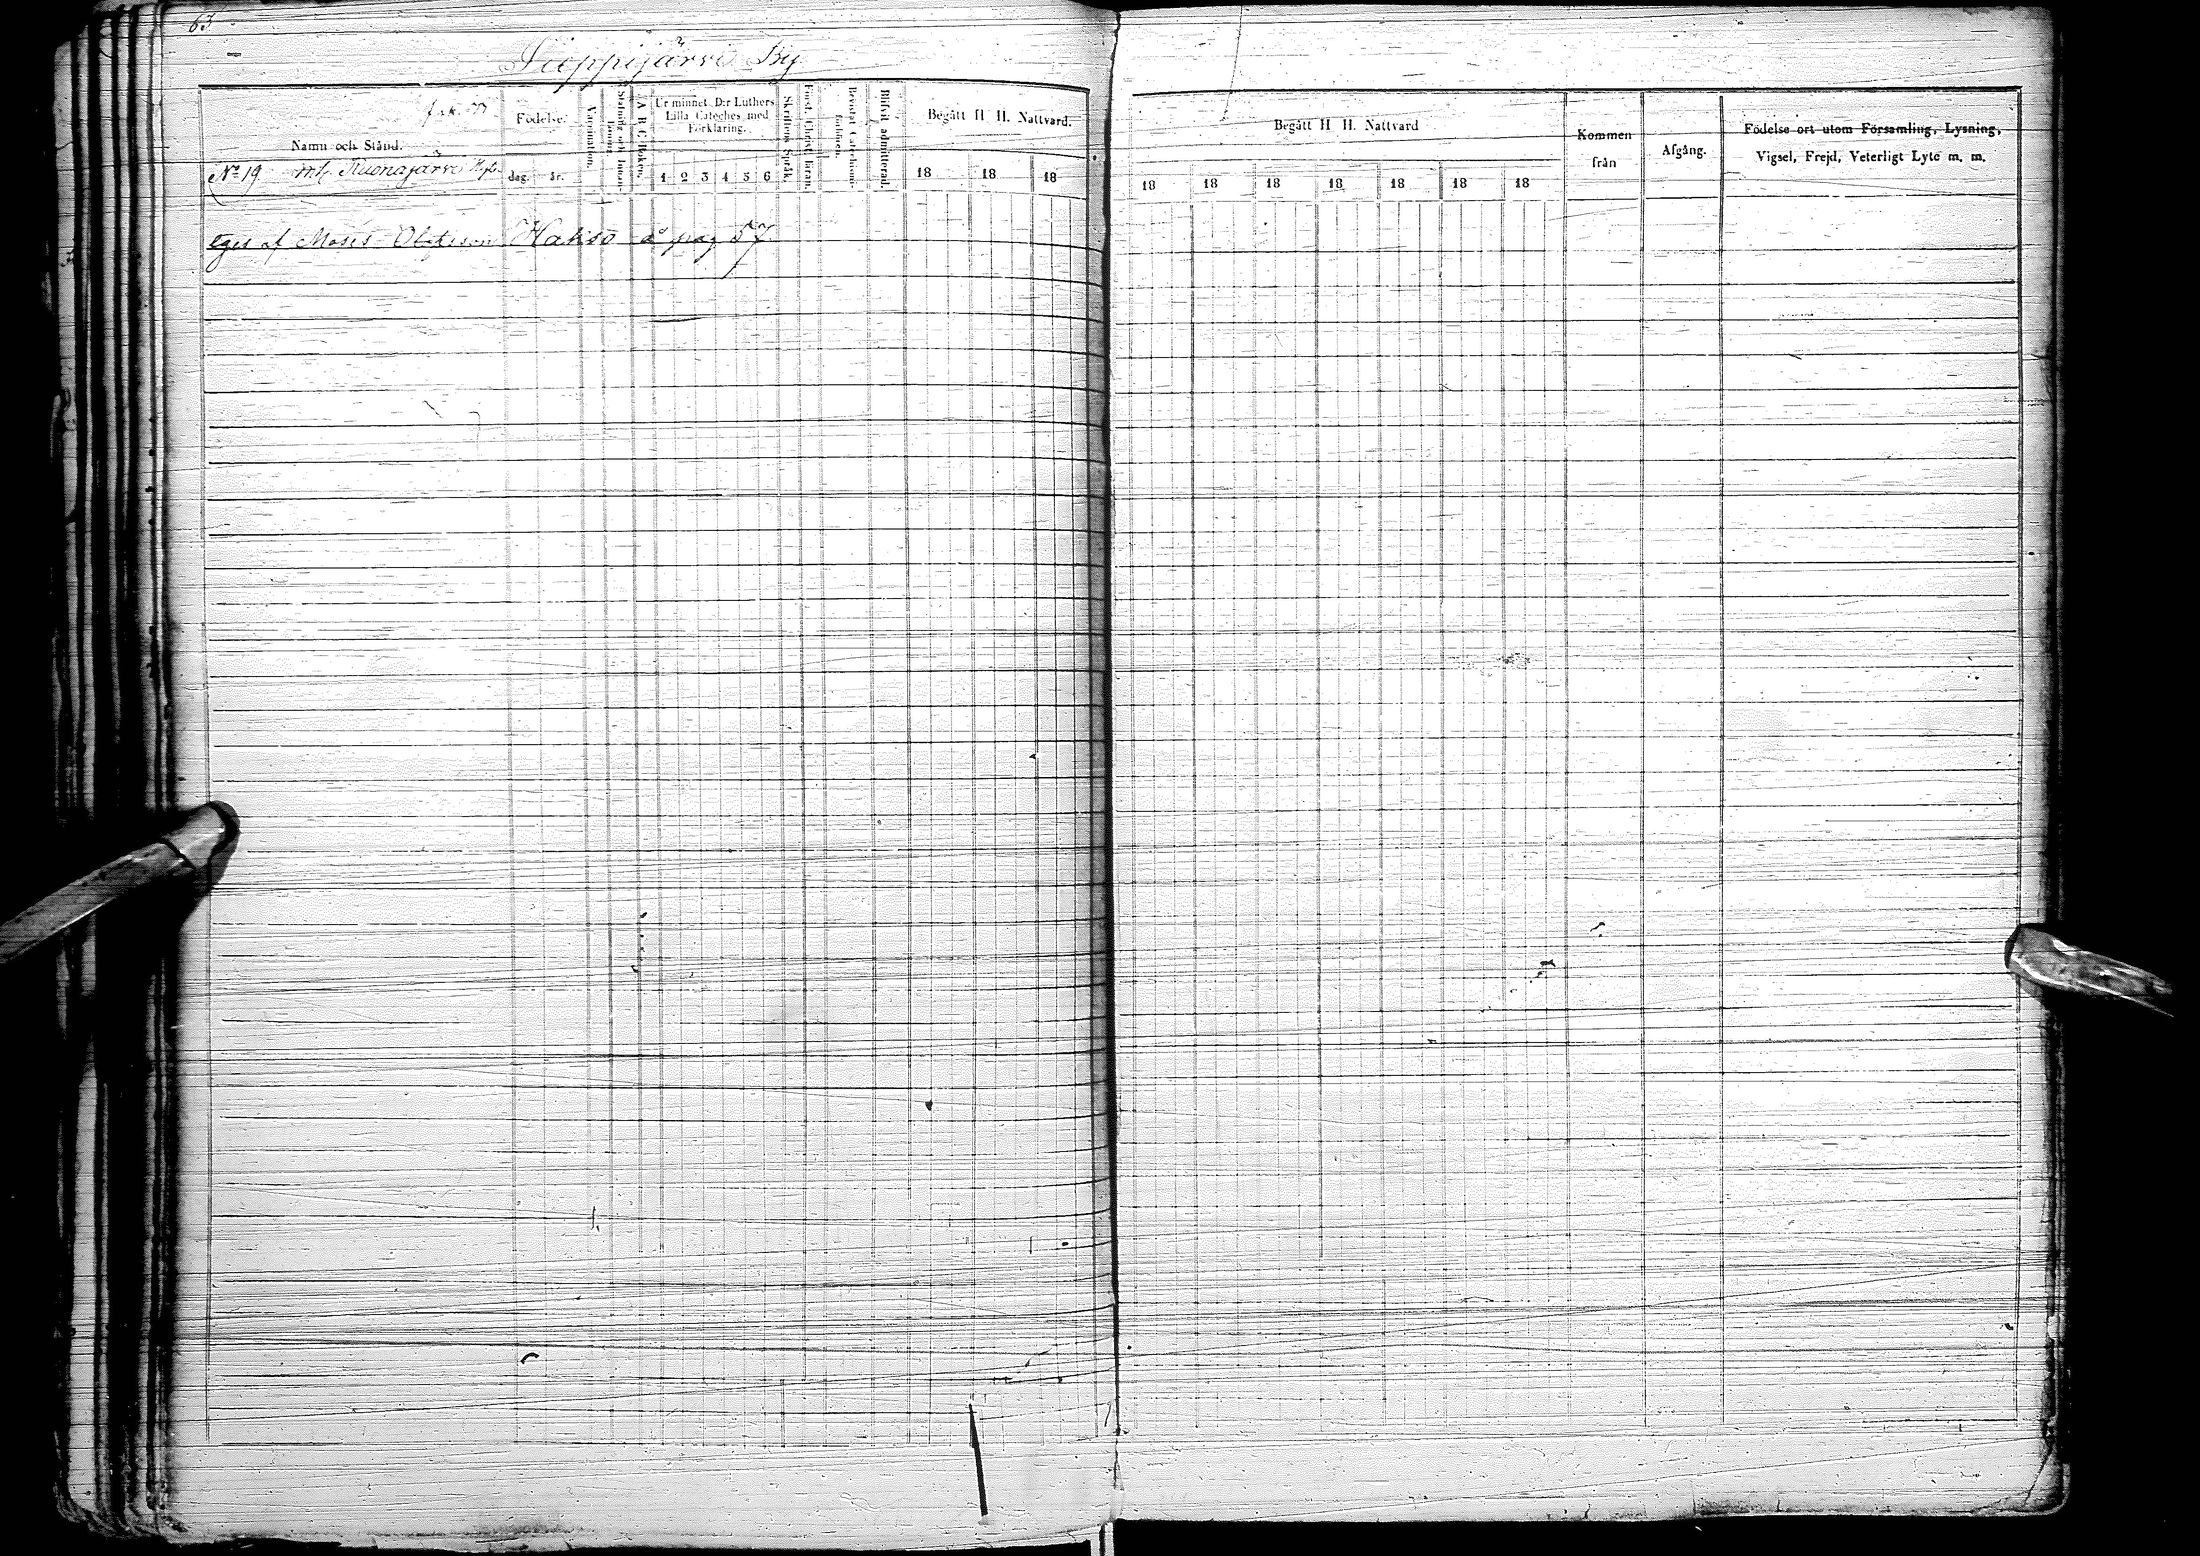 63
Sieppijärvi By
Namn och Stånd.
No 19 Ruonajärvi
Födelse.
dag. år.
Vaccination.
A B C-Boken.
Ur minnet D:r Luthers
Lilla Cateches med
Förklaring.
1 2 3 4 5 6
Skriftens Språk.
Först. Christ. läran.
Bevistat Catechismi-
förhören.
Blifvit admitterad.
Begått H H. Nattvard.
18 18 18
eges af Moses Olofsson Hakso å pag 57
Begått H H. Nattvard
18 18 18 18 18 18 18
Kommen
från
Afgång.
Födelse ort utom Församling, Lysning,
Vigsel, Frejd, Veterligt Lyte m. m.